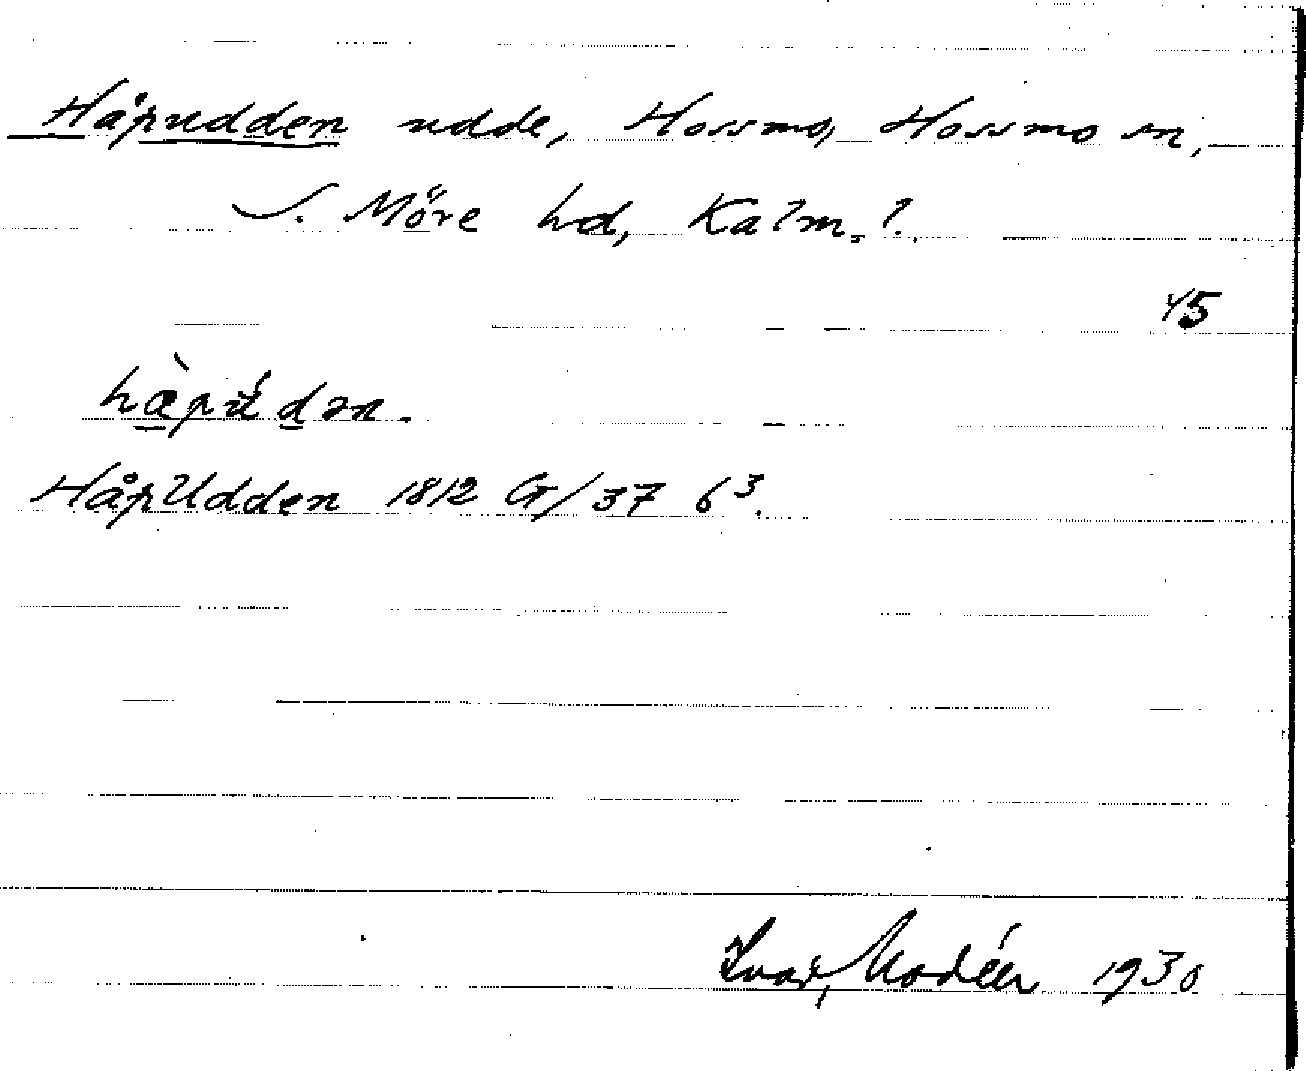 Håpudden udde, Hossmo, Hossmo sn,
S. Möre hd, Kalm. l.
45
hàpúdən.
HåpUdden 1812 G/37 6³.
Ivar Modéer 1930